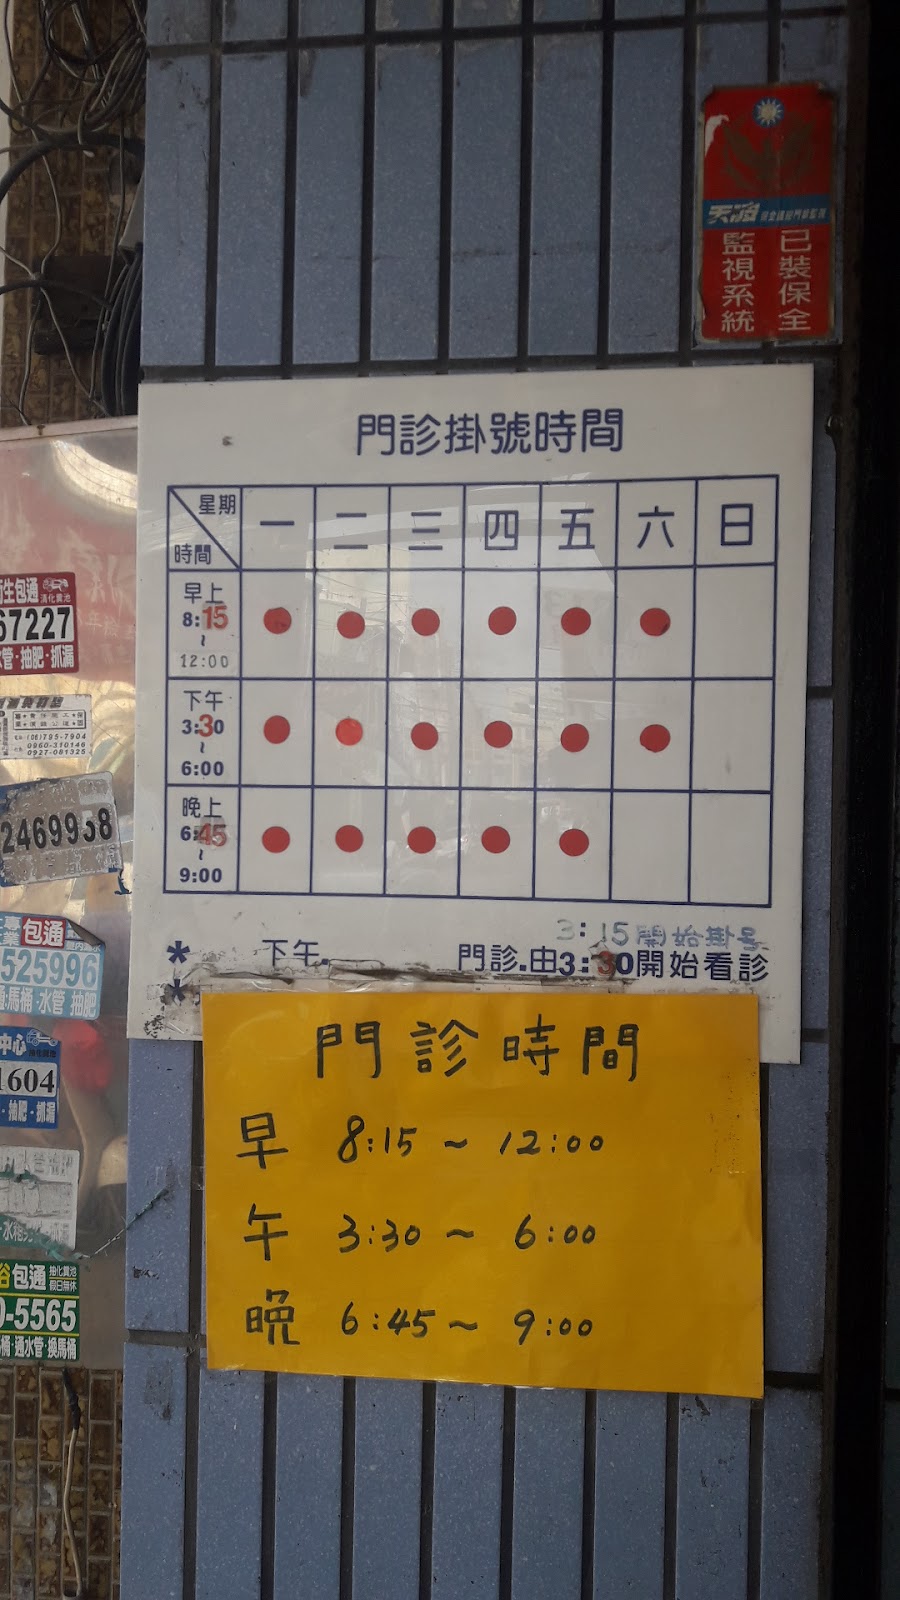 天路
已裝保全
監視系統
門診掛號時間
星期
時間
一 二 三 四 五 六 日
早上
8:15
~
12:00
下午
3:30
~
6:00
晚上
6:45
~
9:00
3:15開始掛号
* 下午. 門診.由3:30開始看診
*
門診時間
早 8:15 ~ 12:00
午 3:30 ~ 6:00
晚 6:45 ~ 9:00
衛生包通
清化糞池
67227
水管·抽肥·抓漏
0960-310146
0927-081325
2469938
專業包通
525996
通·馬桶·水管 抽肥
中心
1604
抽肥·抓漏
包通
抽化糞池
假日無休
0-5565
桶·通水管·換馬桶